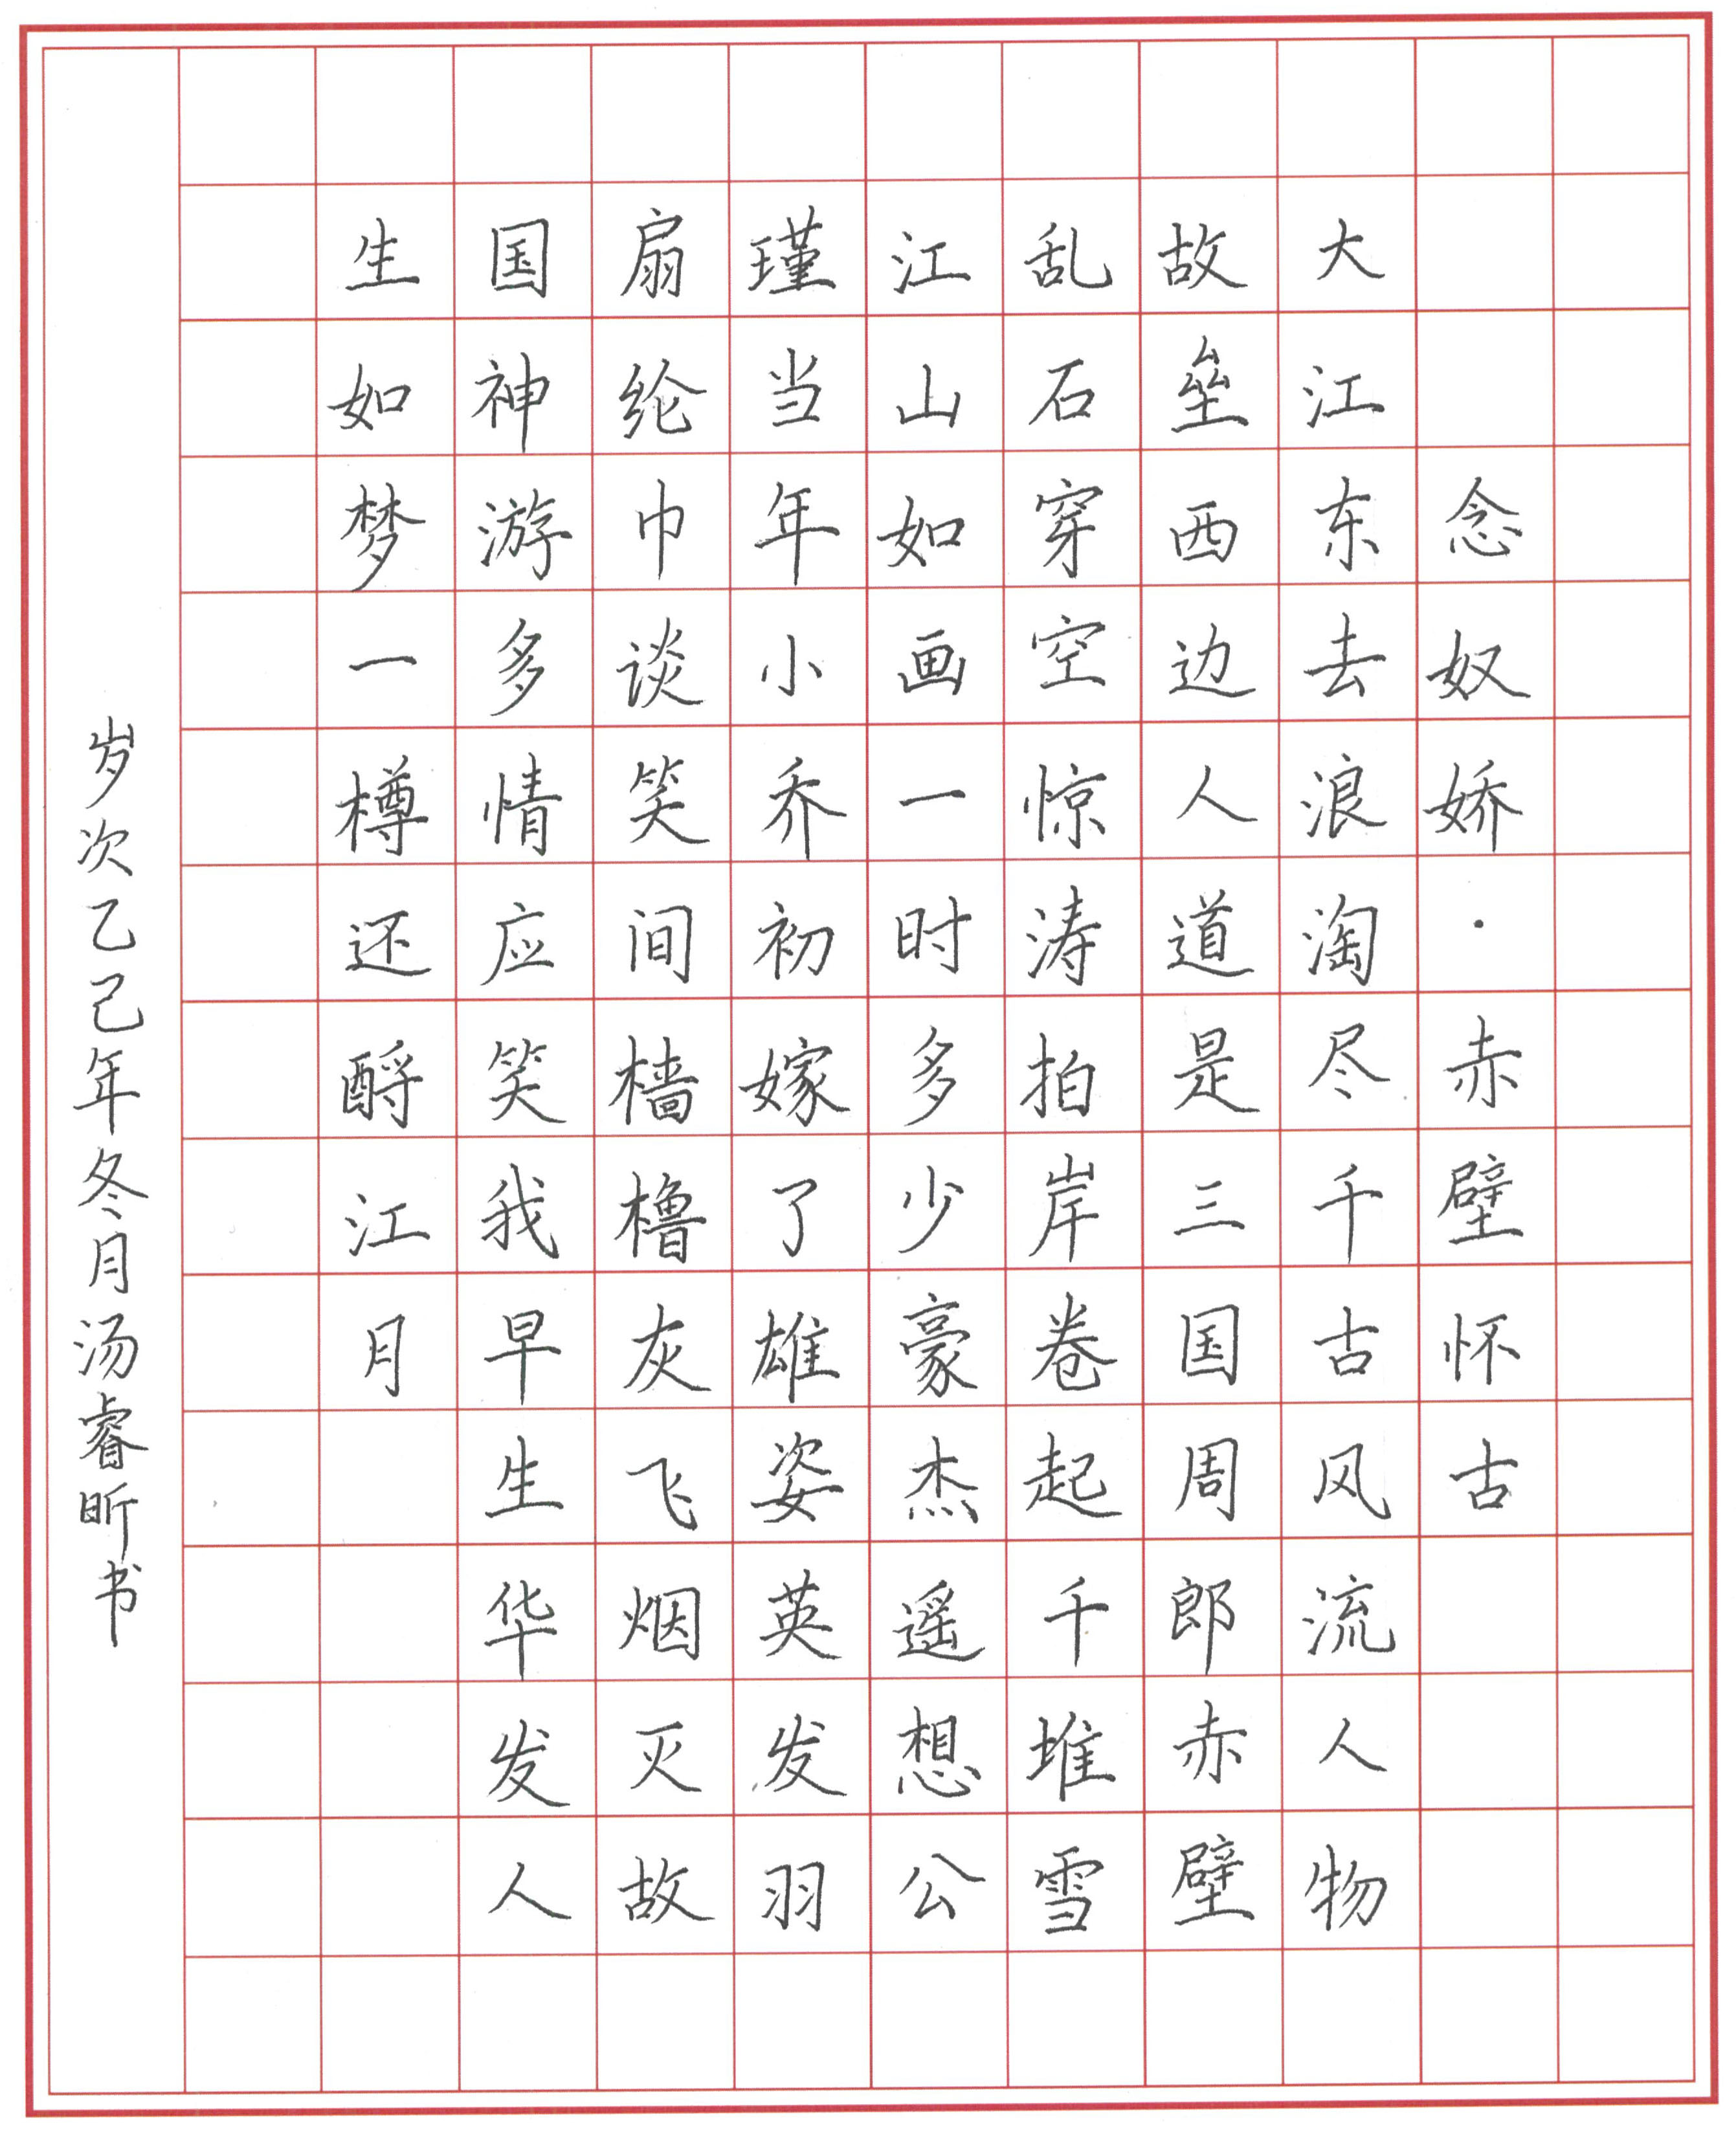 念奴娇·赤壁怀古
大江东去浪淘尽千古风流人物
故垒西边人道是三国周郎赤壁
乱石穿空惊涛拍岸卷起千堆雪
江山如画一时多少豪杰遥想公
瑾当年小乔初嫁了雄姿英发羽
扇纶巾谈笑间樯橹灰飞烟灭故
国神游多情应笑我早生华发人
生如梦一樽还酹江月
岁次乙己年冬月汤睿昕书